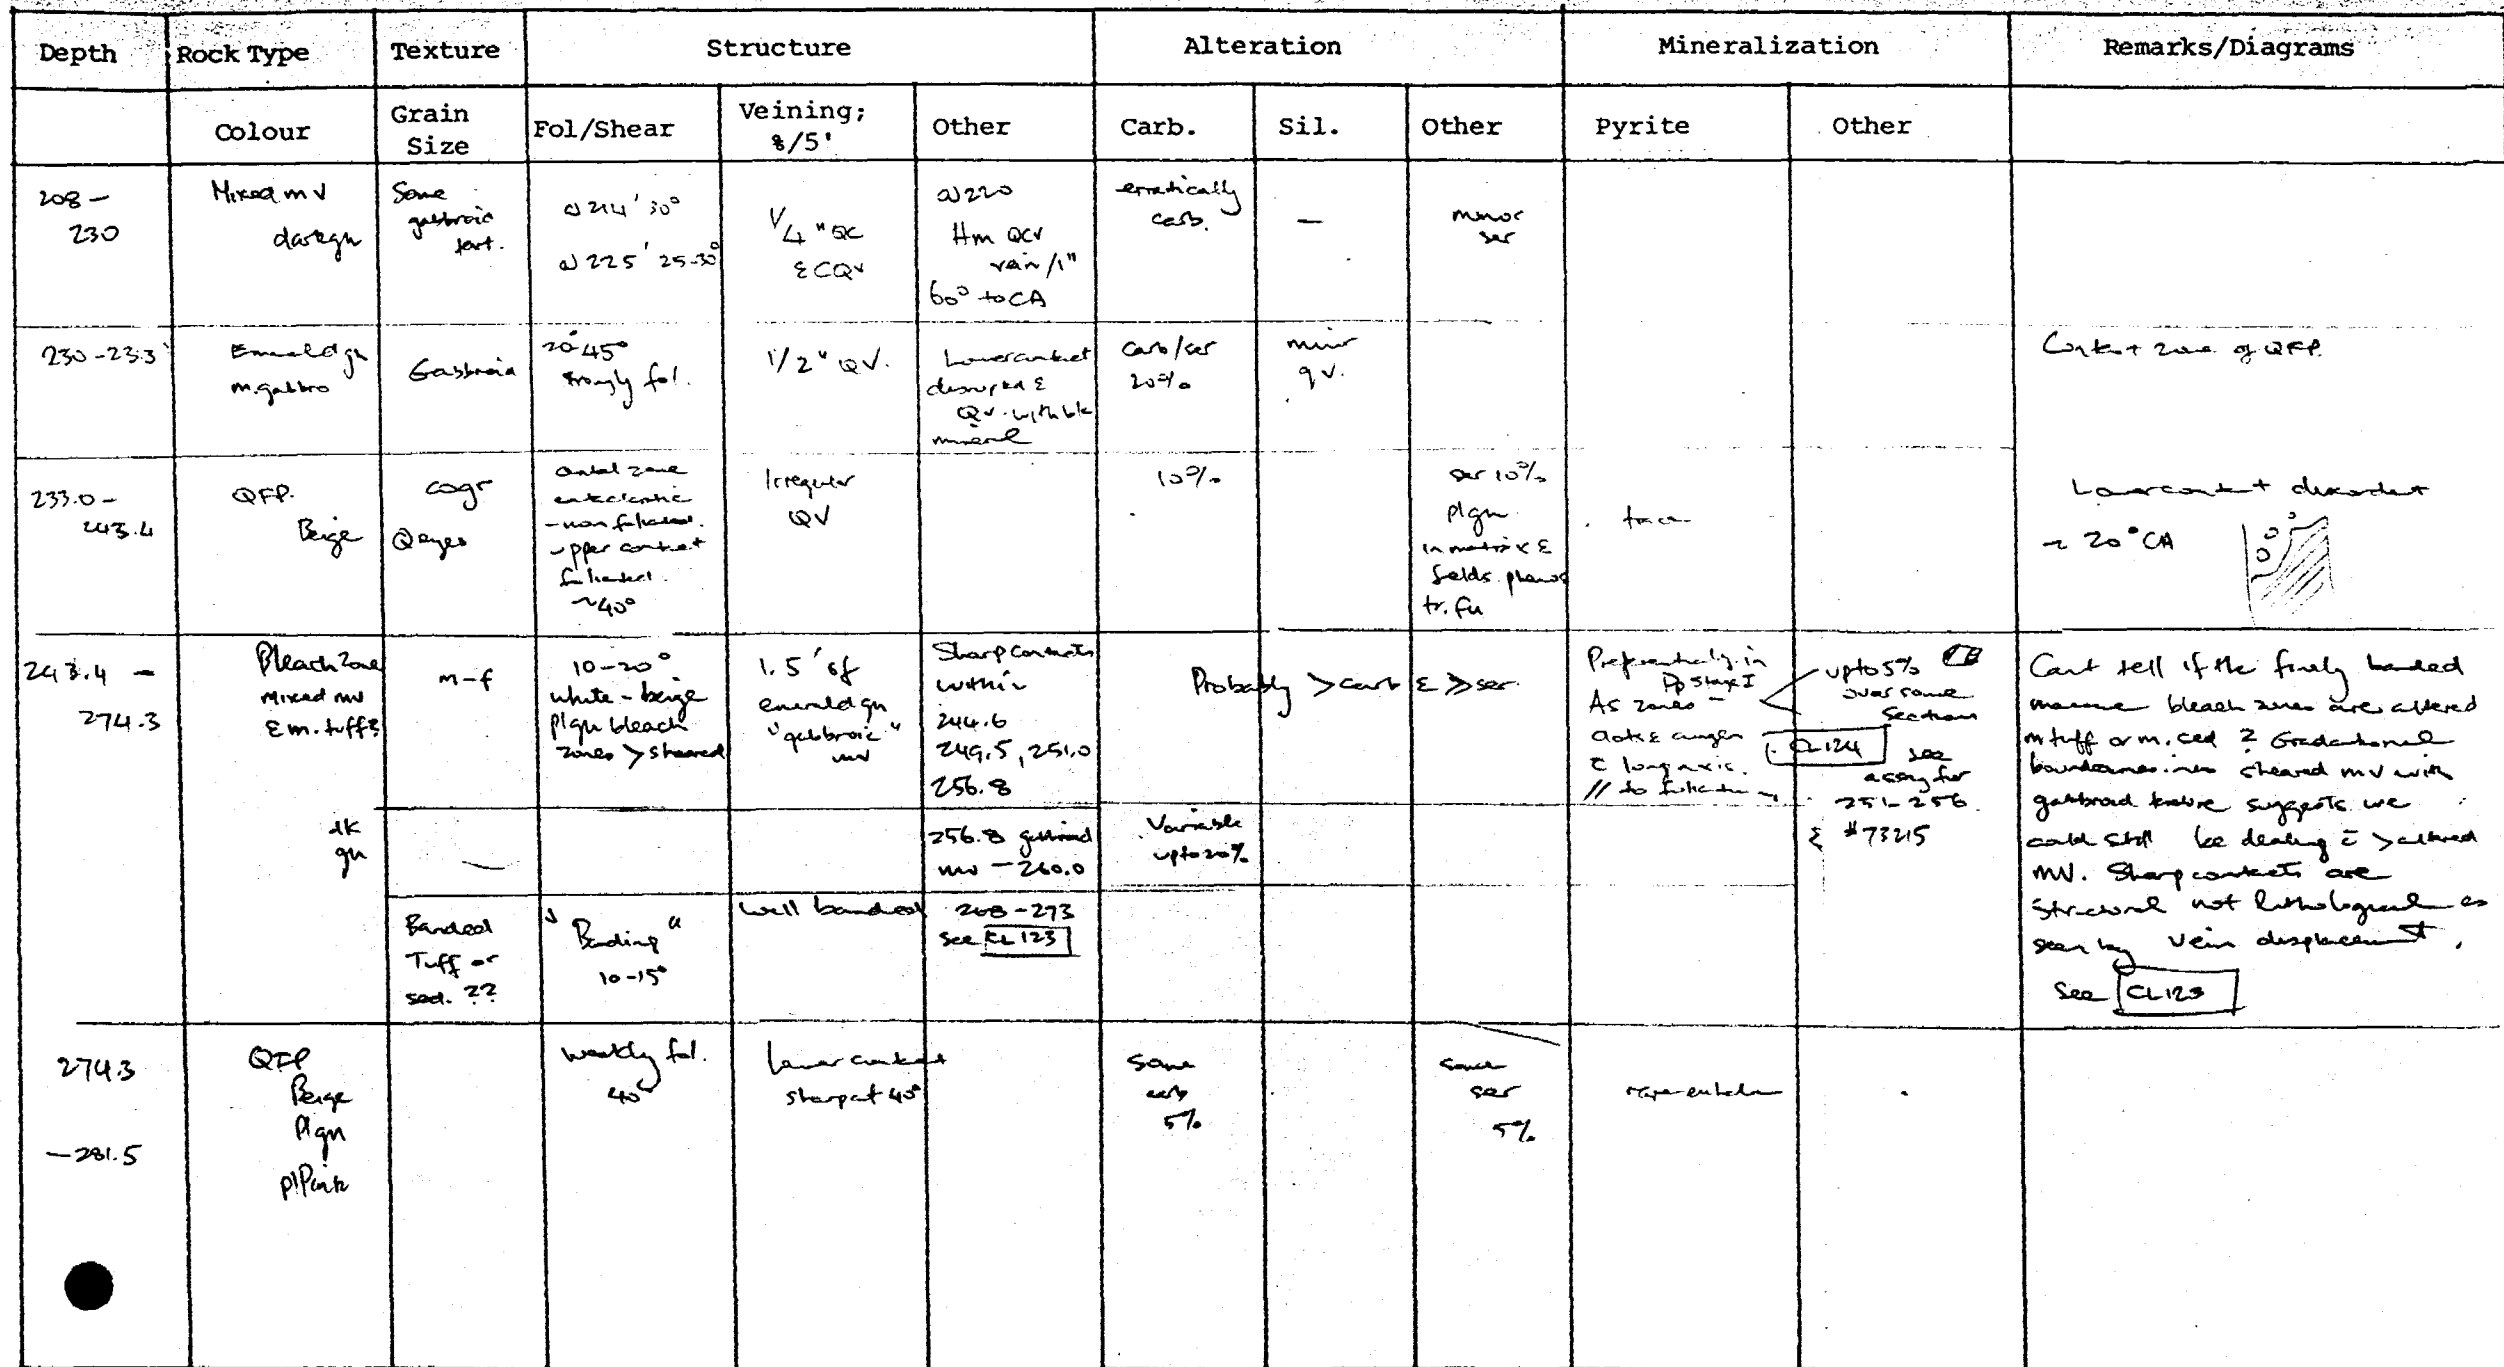 Depth Rock Type Texture Structure Alteration Mineralization Remarks/Diagrams
Colour Grain Size Fol/Shear Veining; %/5' Other Carb. Sil. Other Pyrite Other
208 –
230
Mixed mv
dark gn
Some
gabbroic
text.
@ 214' 30°
@ 225' 25-30°
1/4" QC
& CQV
@ 220
Hm QCV
vein / 1"
60° to CA
erratically
carb.
—
minor
ser
230 - 233'
Emerald gn
m. gabbro
Gabbroic
20-45°
strongly fol.
1/2" QV.
Lower contact
disrupted &
QV. with blk
mineral
Carb/ser
20%
minor
qv.
Contact zone of QFP.
233.0 –
243.4
QFP.
Beige
cogr
Q eyes
cataclastic
- non foliated.
upper contact
foliated.
~40°
Irregular
QV
10%
ser 10%
plgn
in matrix &
felds. phenos
tr. fu
trace
Lower contact discordant
~ 20° CA
243.4 –
274.3
Bleach Zone
Mixed mv
& m. tuffs
m-f
10-20°
white - beige
plgn bleach
zones > sheared
1.5' of
emerald gn
"gabbroic"
mv
Sharp contacts
within
244.6
249.5, 251.0
256.8
Probably > carb & >> ser.
Preferentially in
As zones –
clots &
c̄ long axis.
// to foliation
up to 5%
over some
sections
CL124
see
assay for
251-256
& #73215
Cant tell if the finely banded
massive bleach zones are altered
m tuff or m. sed ? Gradational
boundaries into sheared mv with
gabbroid texture suggests we
could still be dealing c̄ > altered
MV. Sharp contacts are
structural not lithological as
seen by vein displacement.
See CL123
dk
gn
256.8 gabbroid
mv – 260.0
Variable
up to 20%
Banded
Tuff or
sed. ??
"Banding"
10-15°
Well banded
268-273
see CL123
274.3
– 281.5
QFP
Beige
Plgn
pl Pink
weakly fol.
40°
Lower contact
sharp at 40°
some
carb
5%
some
ser
5%